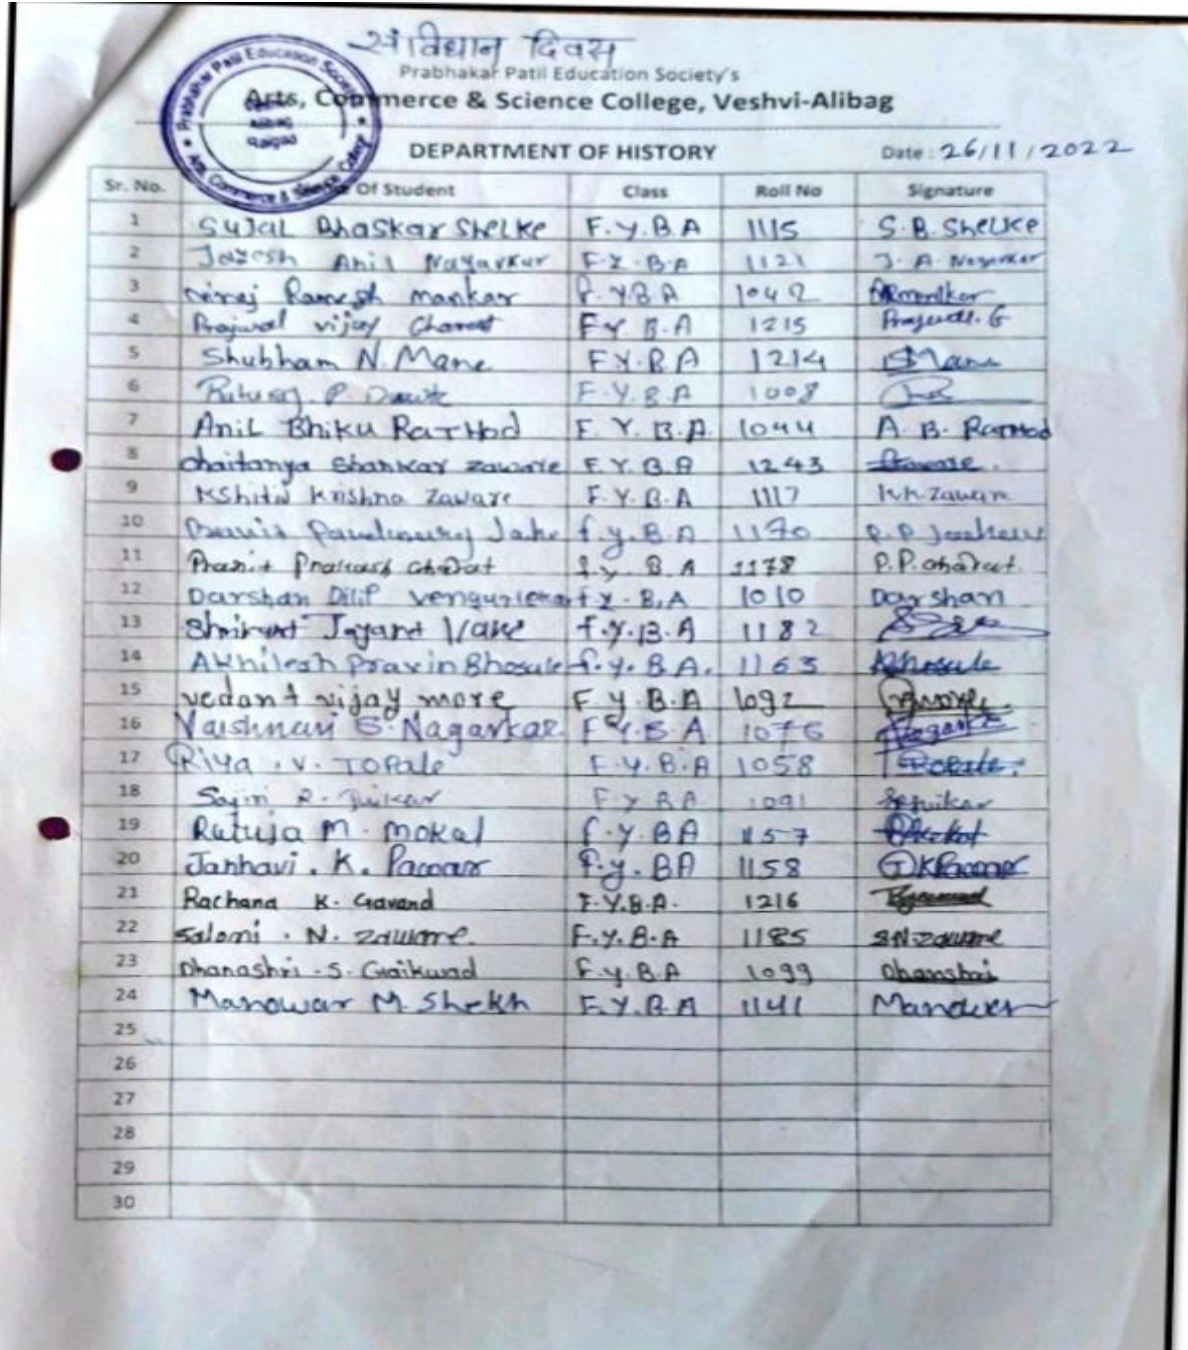 संविधान दिवस
Prabhakar Patil Education Society's
Arts, Commerce & Science College, Veshvi-Alibag
DEPARTMENT OF HISTORY Date: 26/11/2022
Prabhakar Patil Education Society
Alibag
Raigad
Arts, Commerce & Science College
Sr. No. Of Student Class Roll No Signature
1 Sujal Bhaskar Shelke F.Y.B.A 1115 S.B. Shelke
2 Anil Nagavkar F.Y.B.A 1121 J. A. Nagavkar
3 Ramesh mankar F.Y.B.A 1042
4 Prajwal vijay Gharat F.Y.B.A 1215 Prajwal. G
5 Shubham N. Mane F.Y.B.A 1214 Mane
6 F.Y.B.A 1008
7 Anil Bhiku Rathod F.Y.B.A. 1044 A. B. Rathod
8 Chaitanya Shankar Zaware F.Y.B.A 1243 Zaware.
9 Krishna Zaware F.Y.B.A 1117 K.K. Zaware
10 f.y.B.A 1170
11 Pranit Prakash Gharat f.y.B.A 1178 P.P. Gharat.
12 Darshan Dilip f.y.B.A 1010 Darshan
13 Jayant f.y.B.A 1182
14 Akhilesh Pravin Bhosale f.y.B.A. 1163 Bhosale
15 vedant vijay more F.Y.B.A 1092
16 Vaishnavi S. Nagavkar F.Y.B.A 1076
17 Riya . V. Topale F.Y.B.A 1058
18 F.Y.B.A 1091
19 Rutuja M. Mokal F.Y.BA 1157
20 Janhavi . K. Pawar F.y.BA 1158
21 Rachana K. Gavand F.Y.B.A. 1216
22 Saloni . N. Zaware. F.Y.B.A 1185 S.N. Zaware
23 Dhanashri . S. Gaikwad F.Y.B.A 1099 Dhanshri
24 Manowar M. Shekh F.Y.B.A 1141 Manower
25
26
27
28
29
30